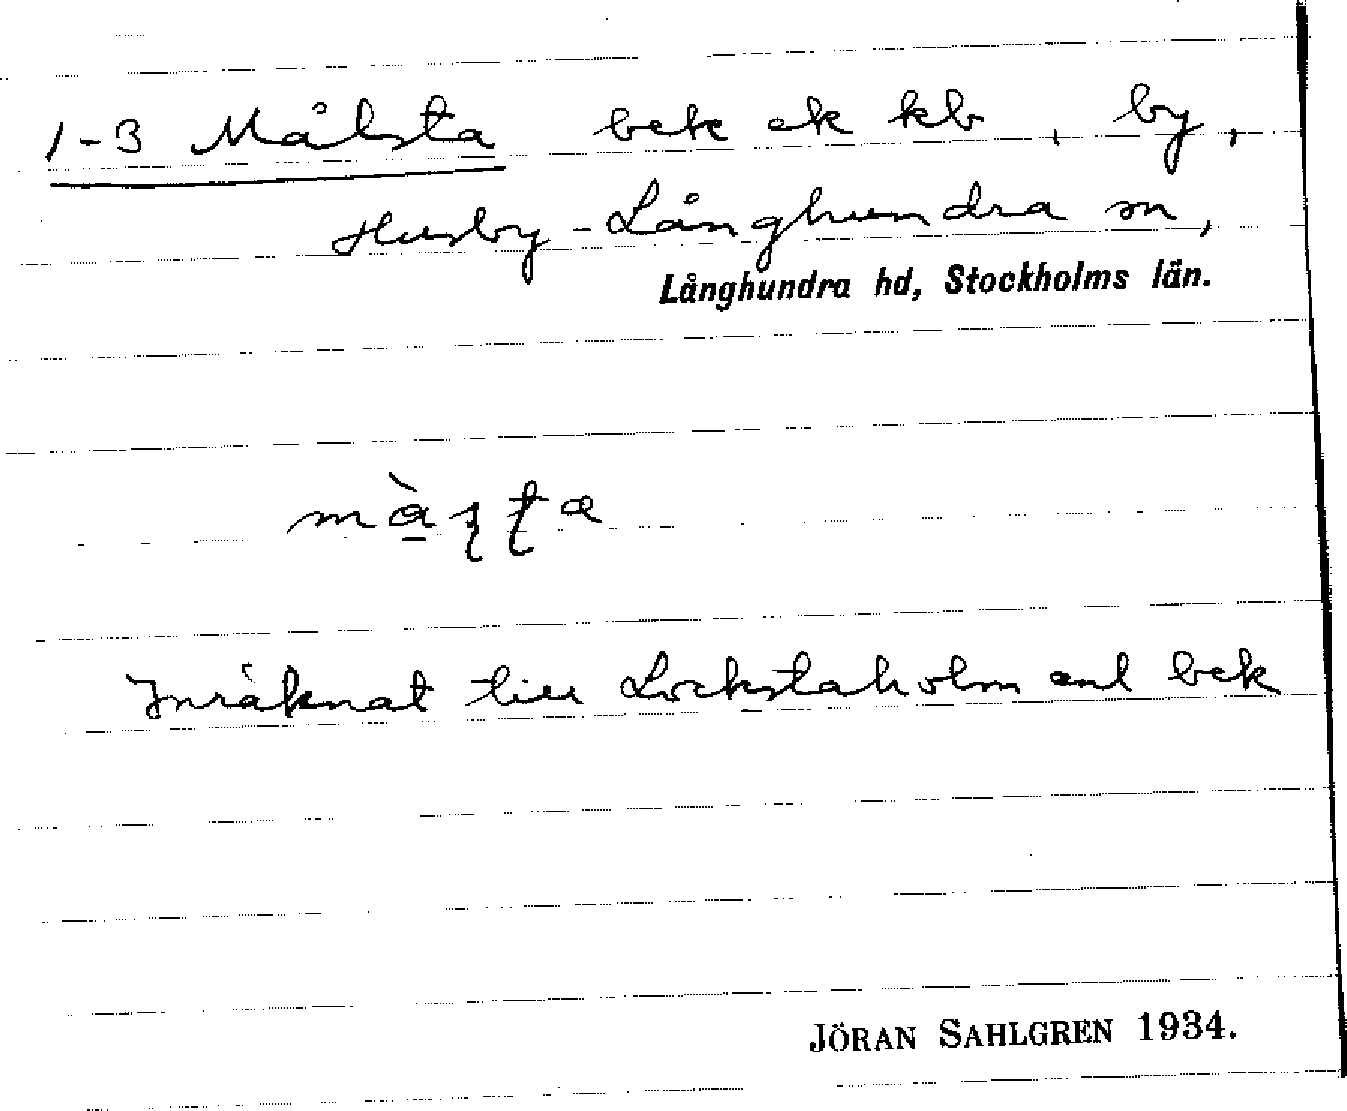 1-3 Målsta bek ek kb, by,
Husby-Långhundra sn,
Långhundra hd, Stockholms län.
Inräknat till Lockstaholm enl bek
JÖRAN SAHLGREN 1934.